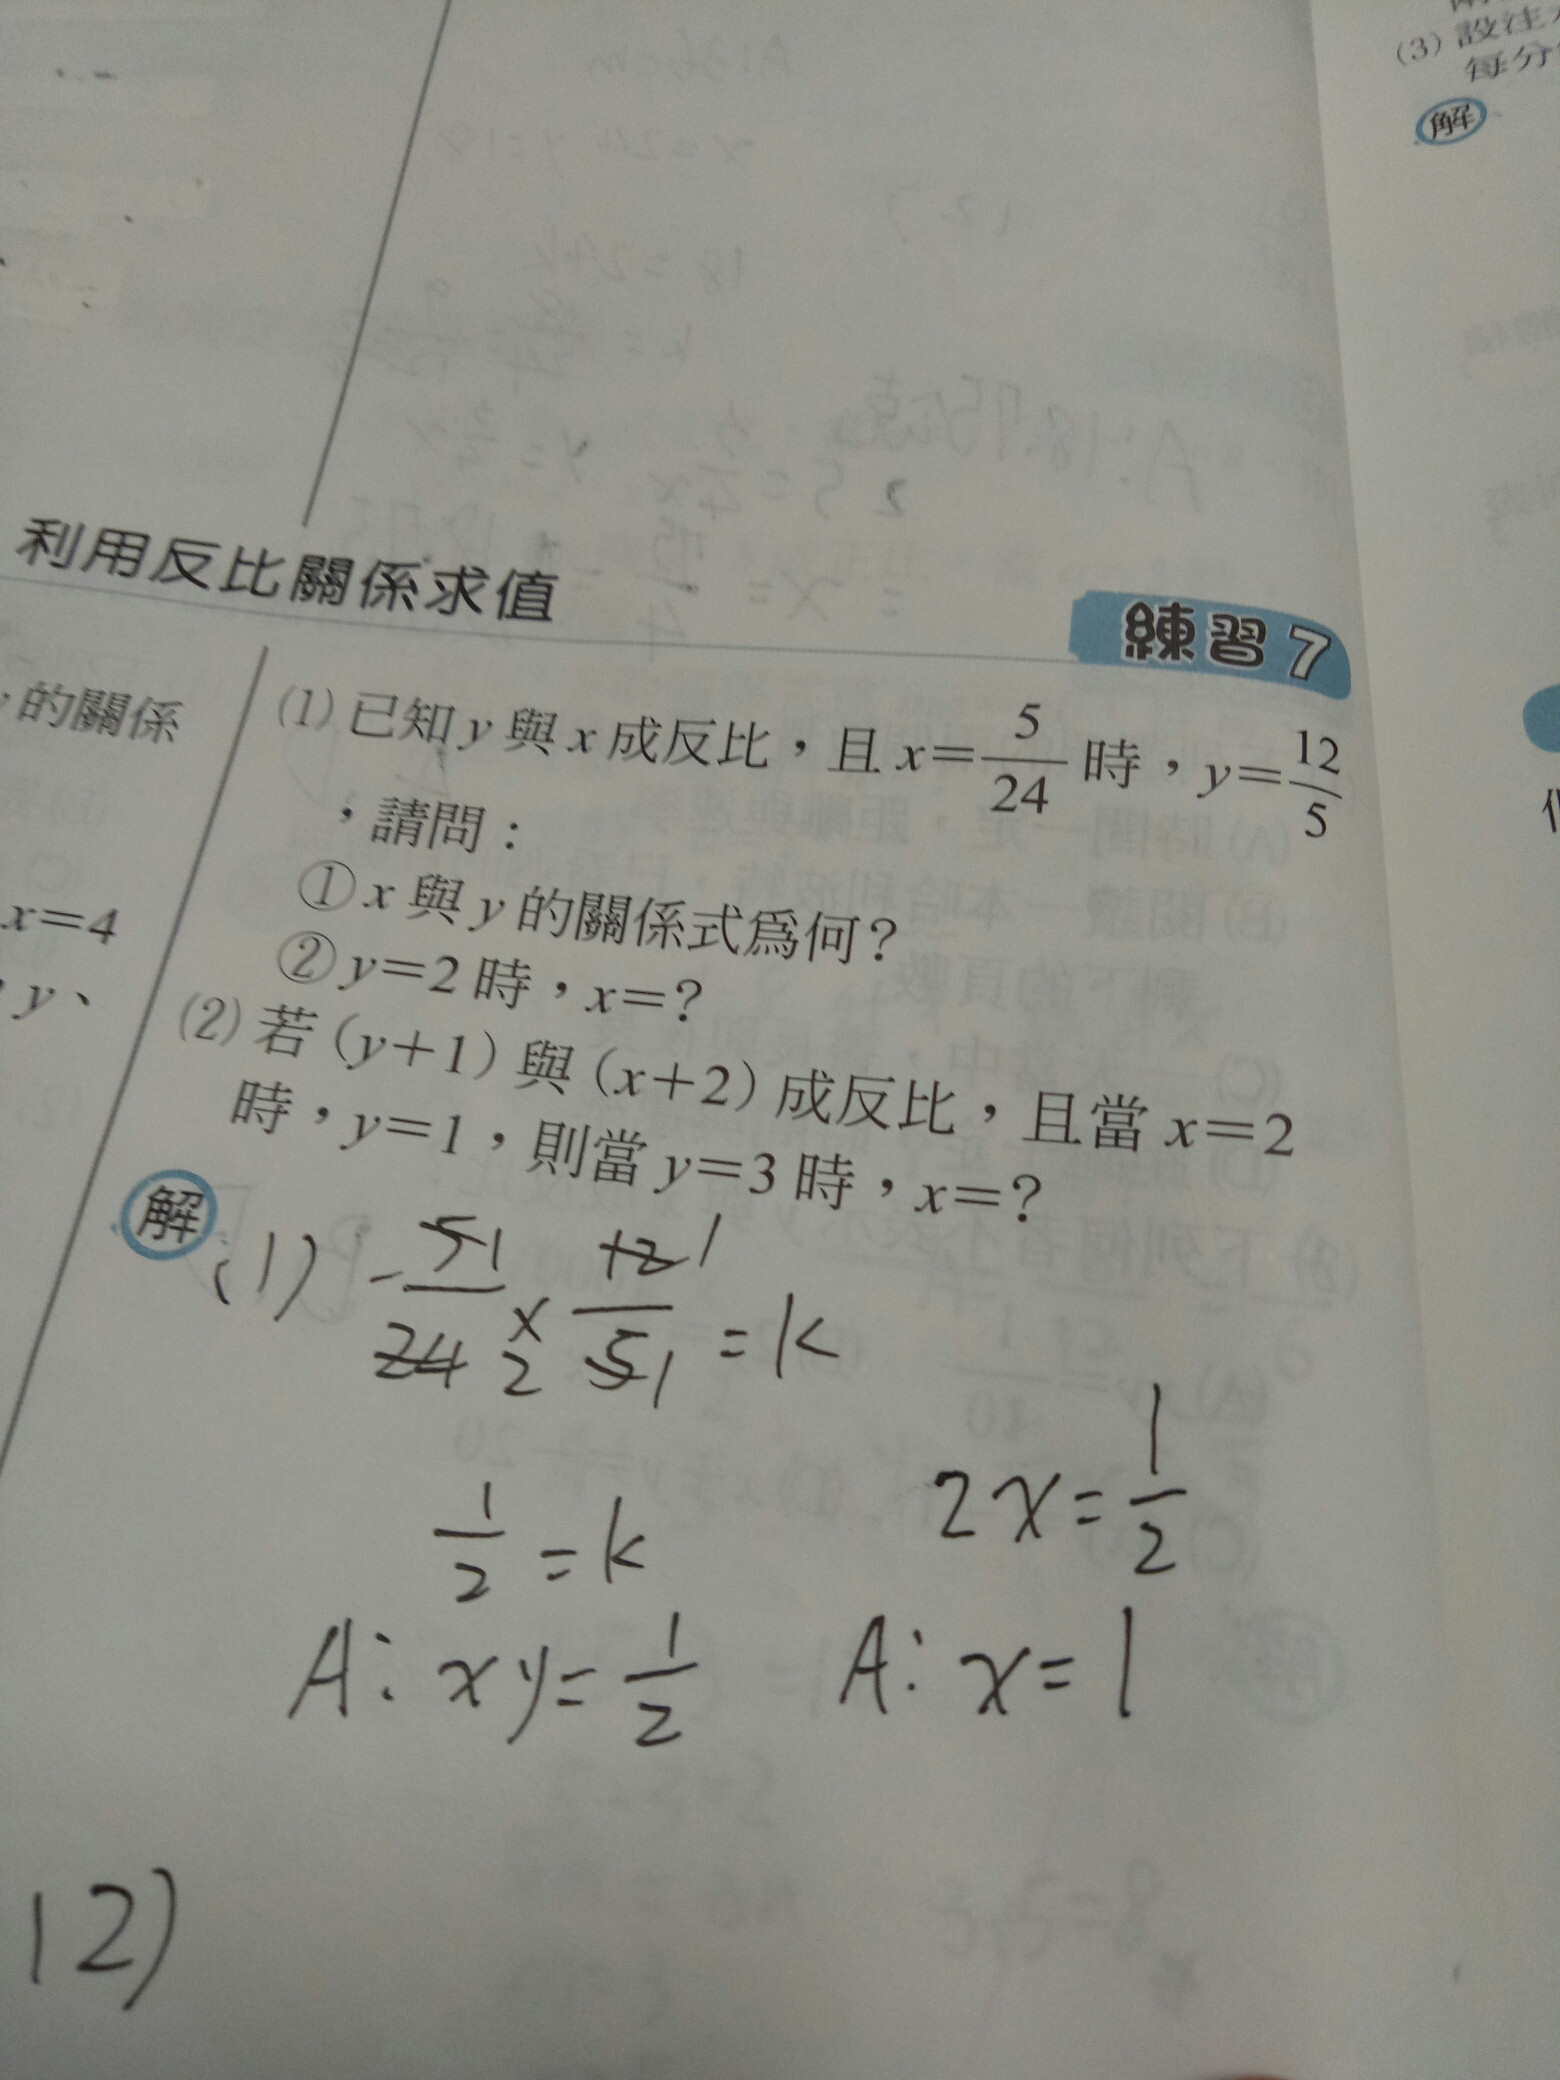 (3) 設注
每分
解
利用反比關係求值
練習 7
的關係
x=4
y、
(1) 已知 y 與 x 成反比，且 x=5/24 時，y=12/5
，請問：
① x 與 y 的關係式為何？
② y=2 時，x=？
(2) 若 (y+1) 與 (x+2) 成反比，且當 x=2
時，y=1，則當 y=3 時，x=？
解
(1) 5 1/24 2 × 12 1/5 1 = k
1/2 = k
2x = 1/2
A: xy = 1/2
A: x = 1
(2)